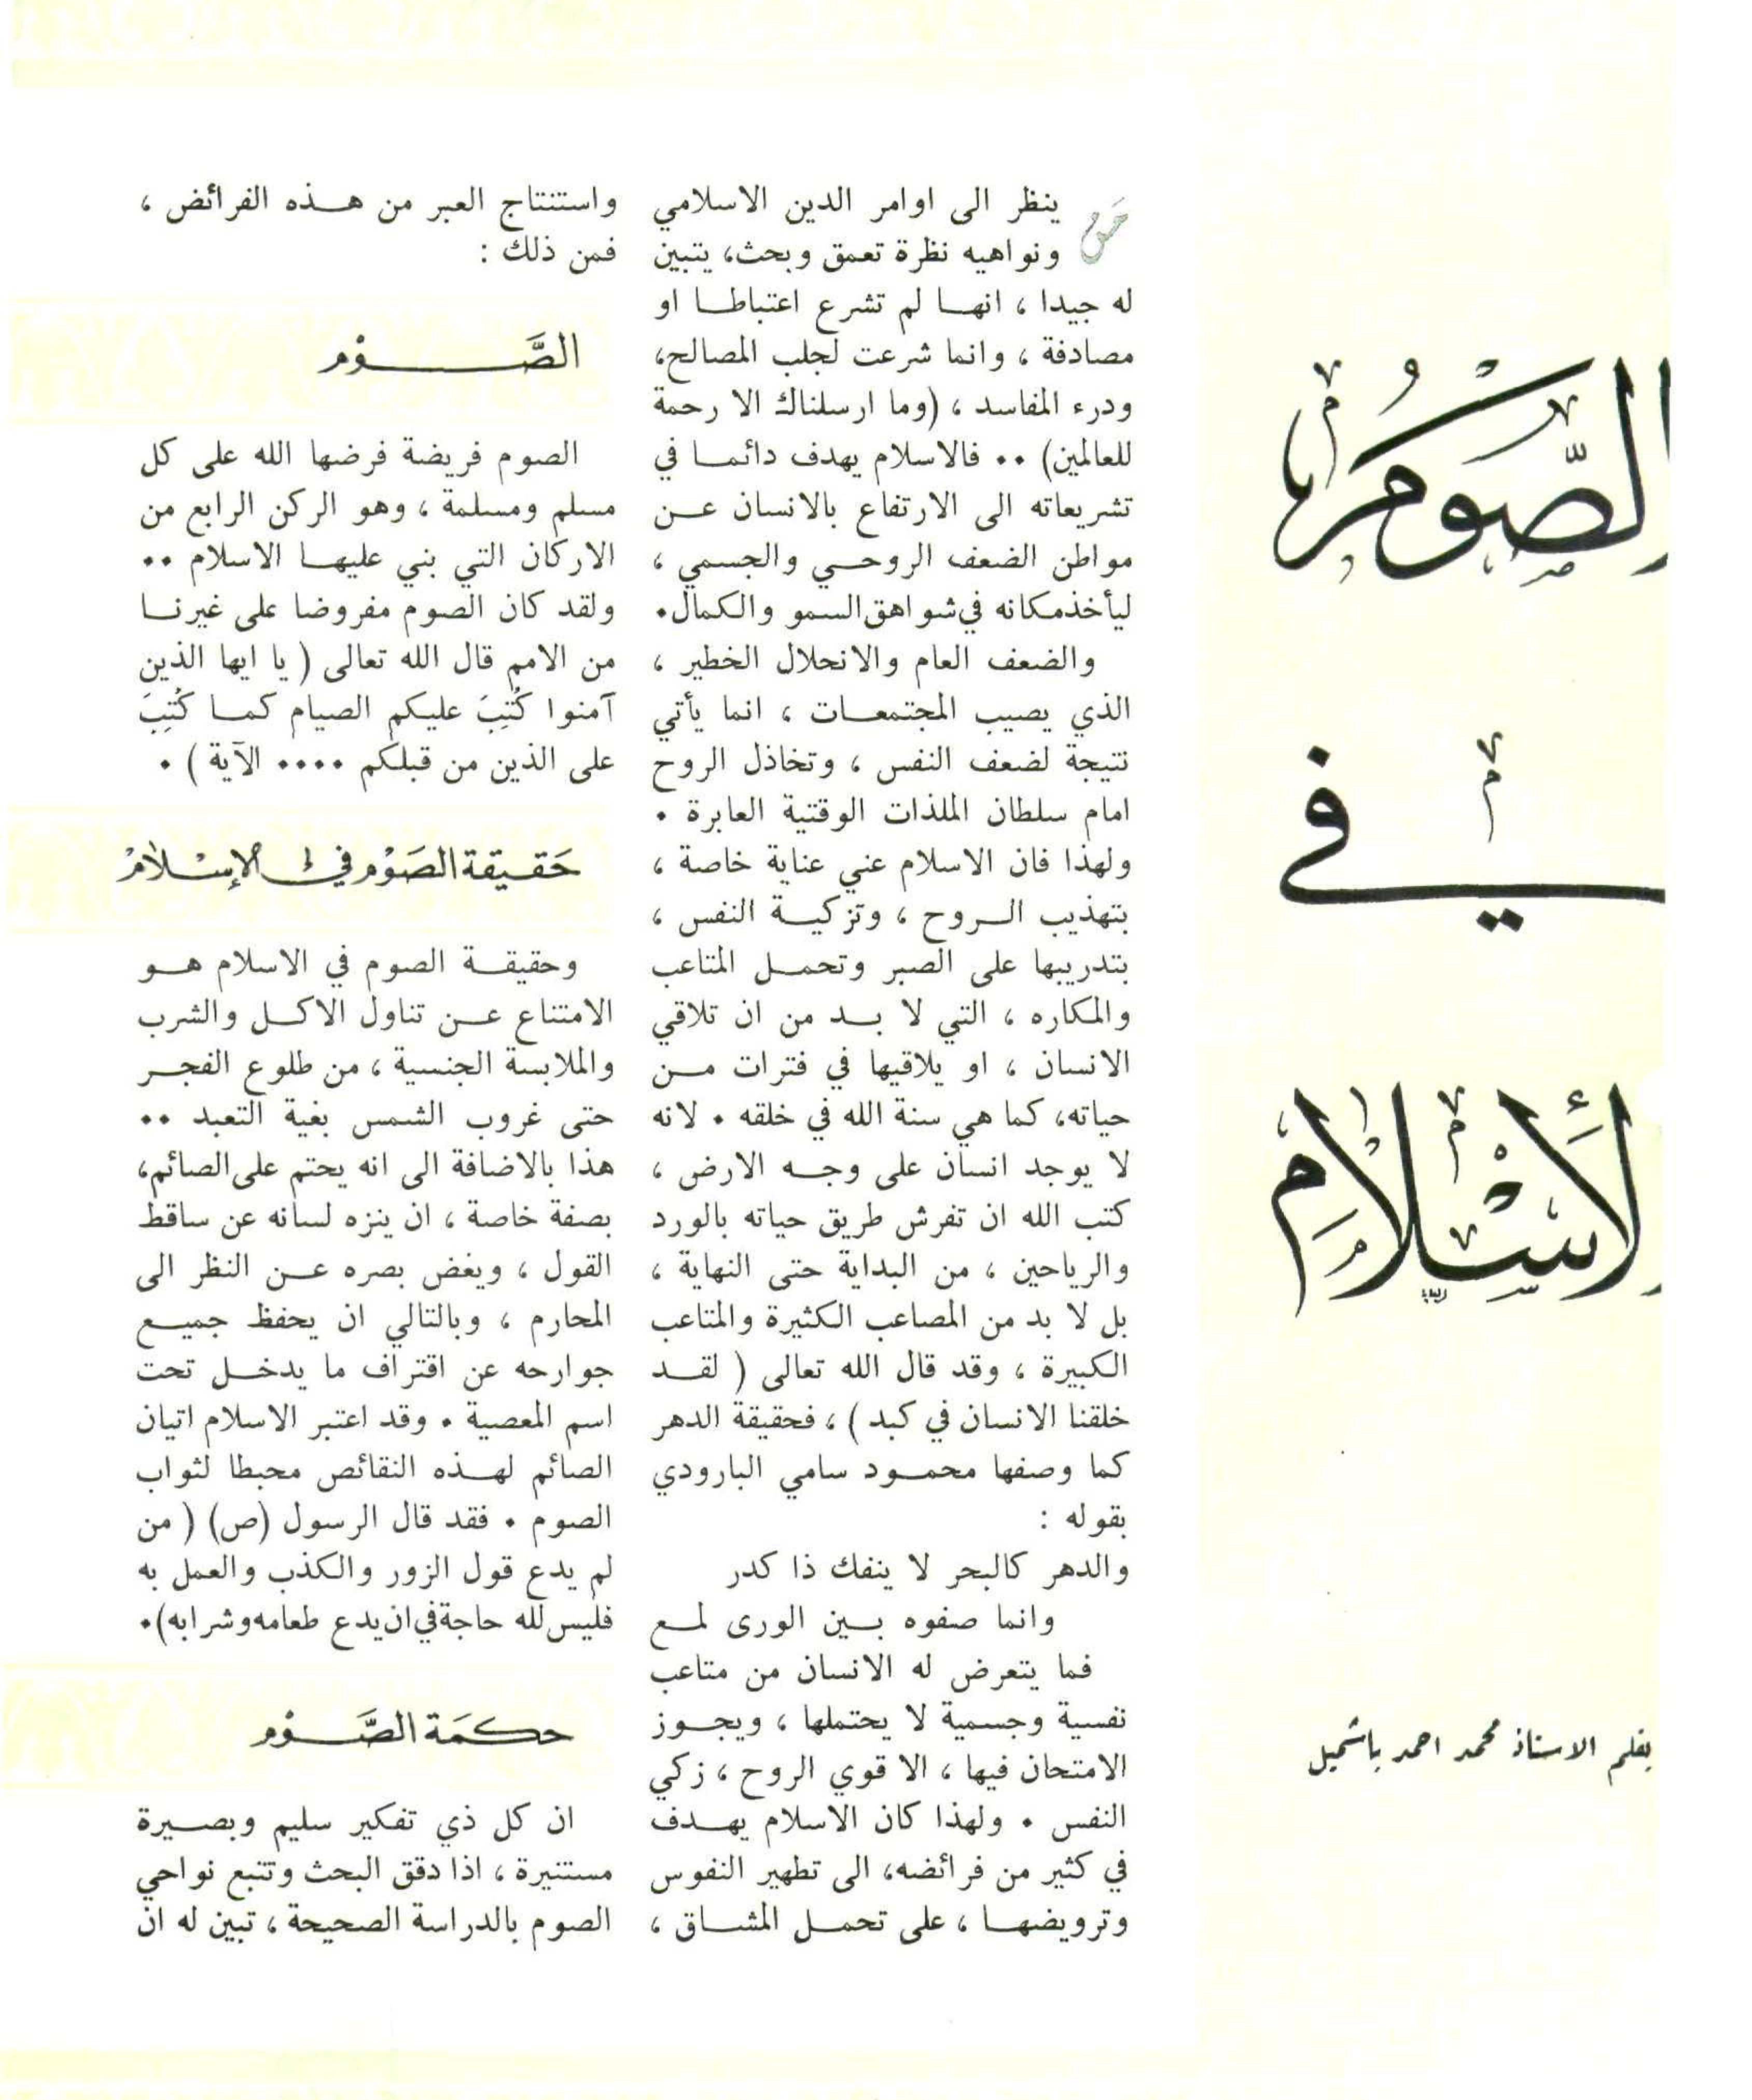 الصَّوْمُ
في
الأَسْلامِ
بقلم الاستاذ محمد احمد باشميل
مَن ينظر الى اوامر الدين الاسلامي
ونواهيه نظرة تعمق وبحث، يتبين
له جيدا ، انهـا لم تشرع اعتباطـا او
مصادفة ، وانما شرعت لجلب المصالح،
ودرء المفاسد ، (وما ارسلناك الا رحمة
للعالمين) ٠٠ فالاسلام يهدف دائمـا في
تشريعاته الى الارتفاع بالانسان عـن
مواطن الضعف الروحـي والجسمي ،
ليأخذمكانه في شواهق السمو والكمال٠
والضعف العام والانحلال الخطير ،
الذي يصيب المجتمعـات ، انما يأتي
نتيجة لضعف النفس ، وتخاذل الروح
امام سلطان الملذات الوقتية العابرة ٠
ولهذا فان الاسلام عني عناية خاصة ،
بتهذيب الـروح ، وتزكيـة النفس ،
بتدريبها على الصبر وتحمـل المتاعب
والمكاره ، التي لا بـد من ان تلاقي
الانسان ، او يلاقيها في فترات مـن
حياته، كما هي سنة الله في خلقه ٠ لانه
لا يوجد انسان على وجـه الارض ،
كتب الله ان تفرش طريق حياته بالورد
والرياحين ، من البداية حتى النهاية ،
بل لا بد من المصاعب الكثيرة والمتاعب
الكبيرة ، وقد قال الله تعالى ( لقـد
خلقنا الانسان في كبد ) ، فحقيقة الدهر
كما وصفها محمـود سامي البارودي
بقوله :
والدهر كالبحر لا ينفك ذا كدر
وانما صفوه بـين الورى لمـع
فما يتعرض له الانسان من متاعب
نفسية وجسمية لا يحتملها ، ويجـوز
الامتحان فيها ، الا قوي الروح ، زكي
النفس ٠ ولهذا كان الاسلام يهـدف
في كثير من فرائضه، الى تطهير النفوس
وترويضهـا ، على تحمـل المشـاق ،
واستنتاج العبر من هـذه الفرائض ،
فمن ذلك :
الصَّـوْم
الصوم فريضة فرضها الله على كل
مسلم ومسلمة ، وهو الركن الرابع من
الاركان التي بني عليهـا الاسلام ٠٠
ولقد كان الصوم مفروضا على غيرنـا
من الامم قال الله تعالى ( يا ايها الذين
آمنوا كُتِبَ عليكم الصيام كمـا كُتِبَ
على الذين من قبلكم ٠٠٠٠ الآية ) ٠
حَقـيقة الصَوْم في الإسْـلامْ
وحقيقـة الصوم في الاسلام هـو
الامتناع عـن تناول الاكـل والشرب
والملابسة الجنسية ، من طلوع الفجـر
حتى غروب الشمس بغية التعبد ٠٠
هذا بالاضافة الى انه يحتم على الصائم،
بصفة خاصة ، ان ينزه لسانه عن ساقط
القول ، ويغض بصره عـن النظر الى
المحارم ، وبالتالي ان يحفظ جميـع
جوارحه عن اقتراف ما يدخـل تحت
اسم المعصية ٠ وقد اعتبر الاسلام اتيان
الصائم لهـذه النقائص محبطا لثواب
الصوم ٠ فقد قال الرسول (ص) ( من
لم يدع قول الزور والكذب والعمل به
فليس لله حاجة في ان يدع طعامه وشرابه)٠
حكمَة الصَّـوْم
ان كل ذي تفكير سليم وبصـيرة
مستنيرة ، اذا دقق البحث وتتبع نواحي
الصوم بالدراسة الصحيحة ، تبين له ان